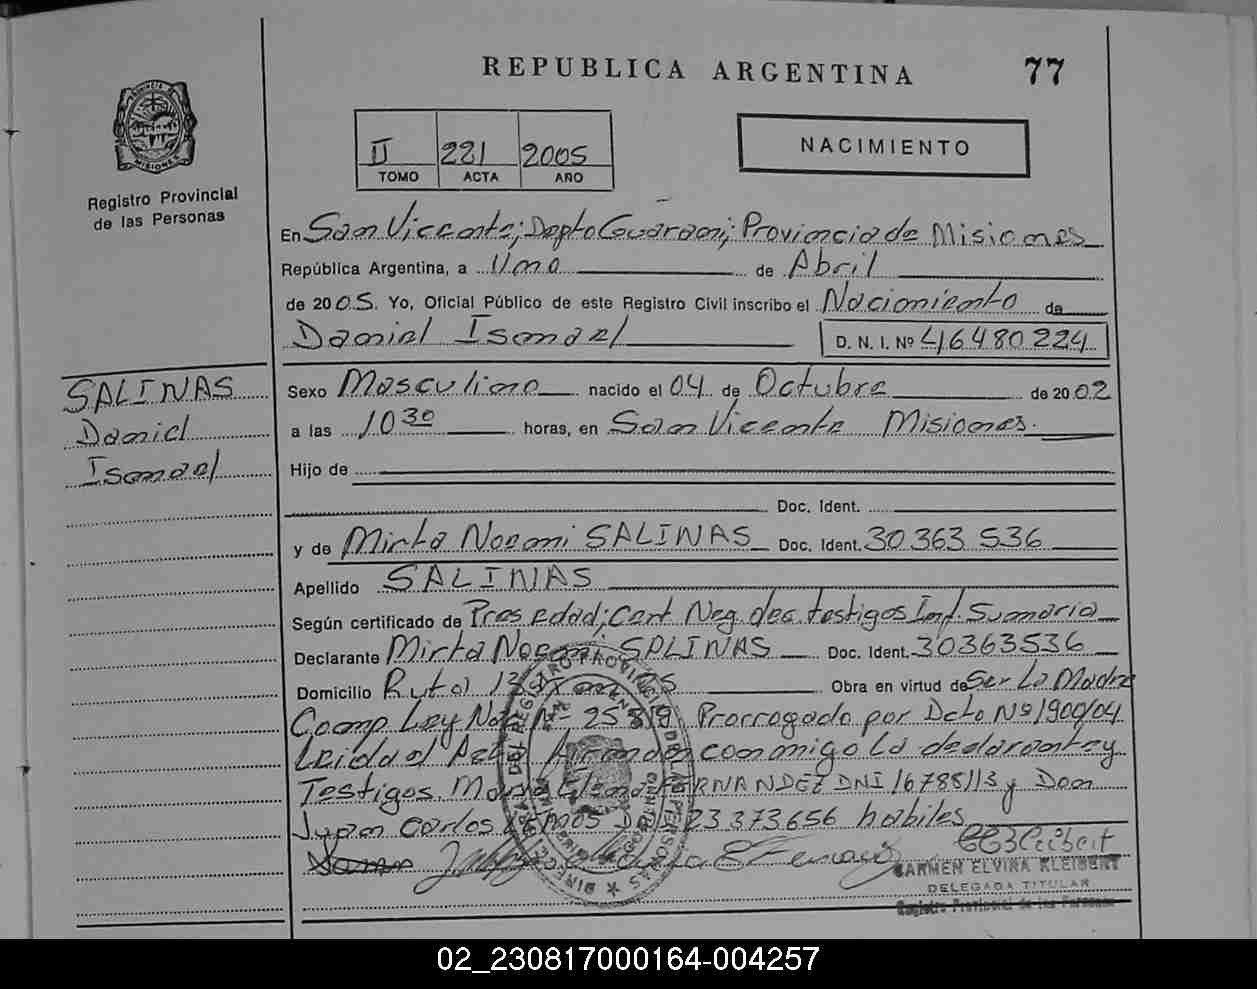 REPUBLICA ARGENTINA 77
II 221 2005
TOMO ACTA AÑO
NACIMIENTO
PROVINCIA DE MISIONES
Registro Provincial
de las Personas
En San Vicente; Depto Guarani; Provincia de Misiones
República Argentina, a Uno de Abril
de 2005. Yo, Oficial Público de este Registro Civil inscribo el Nacimiento de
Daniel Ismael D. N. I. Nº 46480224
SALINAS
Daniel
Ismael
Sexo Masculino nacido el 04 de Octubre de 2002
a las 10 30 horas, en San Vicente Misiones.
Hijo de
Doc. Ident.
y de Mirta Noemi SALINAS Doc. Ident. 30 363 536
Apellido SALINAS
Según certificado de Pres edad; Cert Neg. dec. testigos Inf. Sumaria
Declarante Mirta Noemi SALINAS Doc. Ident. 30363536
Domicilio Ruta 13 Obra en virtud de Ser La Madre
Comp Ley Nac Nº 25819 Prorrogado por Dcto Nº 1900/04
Leida el Acta firman conmigo la declarante y
Testigos. Maria Elena FERNANDEZ DNI 16788113 y Don
Juan Carlos RAMOS DNI 23373656 habiles
CARMEN ELVIRA KLEIBERT
DELEGADA TITULAR
Registro Provincial de las Personas
02_230817000164-004257